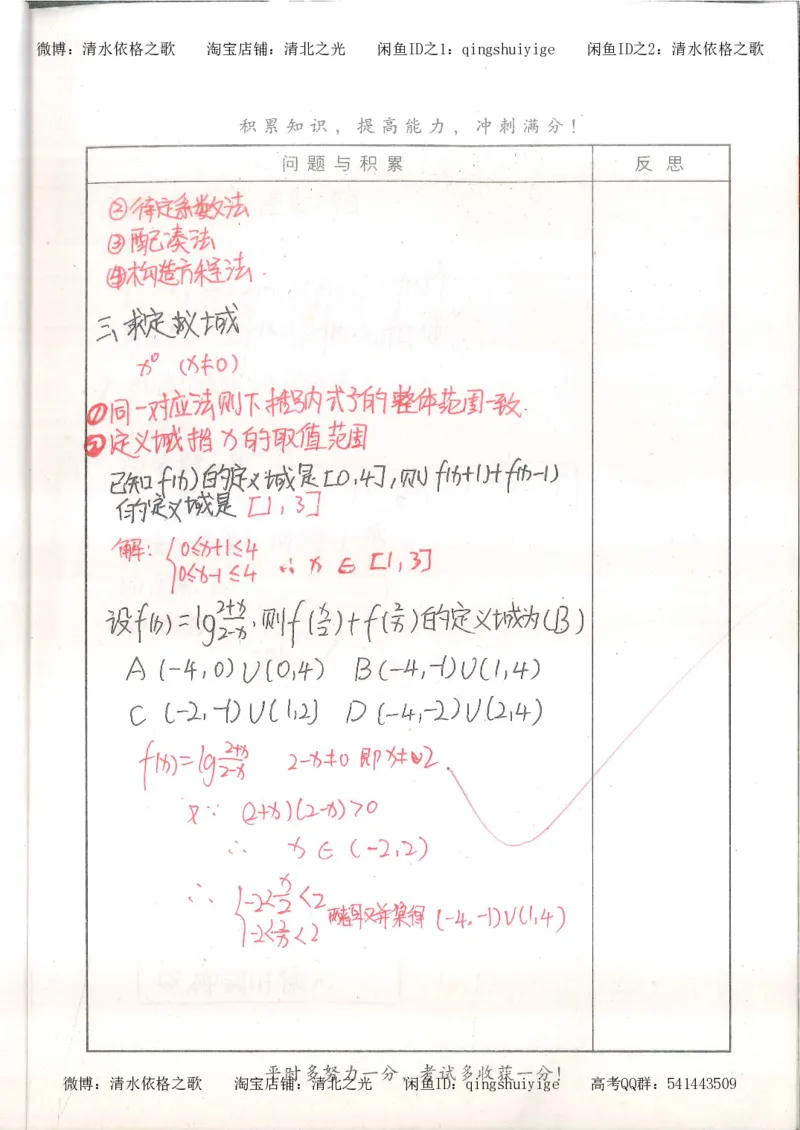 微博：清水依格之歌 淘宝店铺：清北之光 闲鱼ID之1：qingshuiyige 闲鱼ID之2：清水依格之歌
积累知识，提高能力，冲刺满分！
问题与积累 反思
②待定系数法
③配凑法
④构造方程法.
三、求定义域
x⁰ (x≠0)
①同一对应法则下括号内式子的整体范围一致.
②定义域指x的取值范围
已知f(x)的定义域是[0,4],则f(x+1)+f(x-1)
的定义域是[1,3]
解：{0≤x+1≤4
0≤x-1≤4 ∴ x∈[1,3]
设f(x)=lg(2+x)/(2-x),则f(x/2)+f(2/x)的定义域为(B)
A (-4,0)∪(0,4) B (-4,-1)∪(1,4)
C (-2,-1)∪(1,2] D (-4,-2)∪(2,4)
f(x)=lg(2+x)/(2-x) 2-x≠0 即x≠2.
又∵ (2+x)(2-x)>0
∴ x∈(-2,2)
∴ {-2<x/2<2
-2<2/x<2 两者取并集得 (-4,-1)∪(1,4)
平时多努力一分，考试多收获一分！
微博：清水依格之歌 淘宝店铺：清北之光 闲鱼ID：qingshuiyige 高考QQ群：541443509